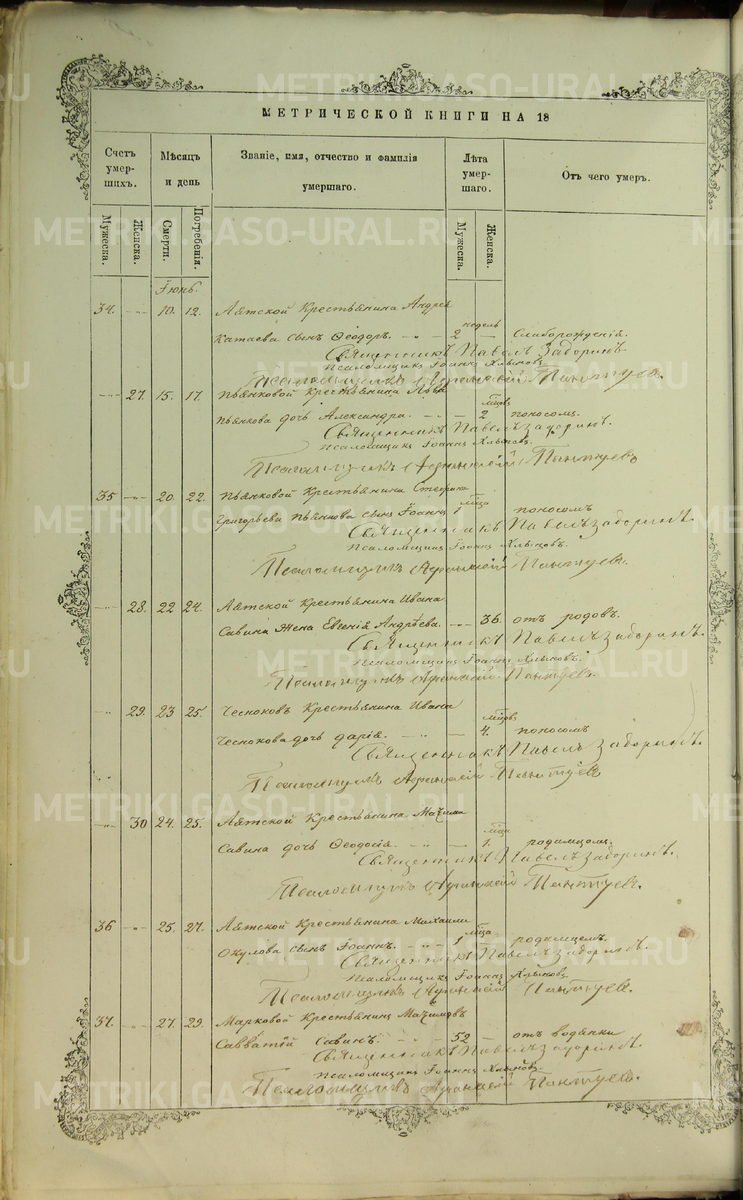 METRIKI.GASO-URAL.RU
МЕТРИЧЕСКОЙ КНИГИ НА 18
Счетъ умер-шихъ.
Мѣсяцъ и день
Званіе, имя, отчество и фамилія умершаго.
Лѣта умер-шаго.
Отъ чего умеръ.
Мужеска.
Женска.
Смерти.
Погребенія.
Мужеска.
Женска.
Іюнь.
34. 10. 12. Аятской Крестьянина Андрея
недель
Катаева сынъ Ѳеодоръ. 2 Слаборожденія.
Священникъ Павелъ Задоринъ.
Псаломщикъ Іоаннъ Хлыновъ.
Псаломщикъ Пантуевъ.
27. 15. 17. Пьянковой Крестьянина Льва
мѣсяцовъ
Пьянкова дочь Александра. 2 поносомъ.
Священникъ Павелъ Задоринъ.
Псаломщикъ Іоаннъ Хлыновъ.
Псаломщикъ Пантуевъ
35 20. 22. Пьянковой Крестьянина Стефана
мѣсяца
Григорьева Пьянкова сынъ Іоаннъ 1 поносомъ
Священникъ Павелъ Задоринъ.
Псаломщикъ Іоаннъ Хлыновъ.
Псаломщикъ Пантуевъ.
28. 22 24. Аятской Крестьянина Ивана
Савина Жена Евгенія Андрѣева. 36. отъ родовъ.
Священникъ Павелъ Задоринъ.
Псаломщикъ Іоаннъ Хлыновъ.
Псаломщикъ Пантуевъ.
29. 23 25. Чесноковъ Крестьянина Ивана
мѣсяцовъ
Чеснокова дочь Дарія. 4. поносомъ
Священникъ Павелъ Задоринъ.
Псаломщикъ Пантуевъ
30 24. 25. Аятской Крестьянина Маѯима
мѣсяца
Савина дочь Ѳеодосія. 1. родимцемъ.
Священникъ Павелъ Задоринъ.
Псаломщикъ Пантуевъ.
36 25. 27. Аятской Крестьянина Михаила
мѣсяца
Окулова сынъ Іоаннъ. 1 родимцемъ.
Священникъ Павелъ Задоринъ.
Псаломщикъ Іоаннъ Хлыновъ.
Псаломщикъ Пантуевъ.
37. 27. 29. Марковой Крестьянинъ Маѯимовъ
Савватій Савинъ. 52 отъ водянки
Священникъ Павелъ Задоринъ.
Псаломщикъ Іоаннъ Хлыновъ.
Псаломщикъ Пантуевъ.